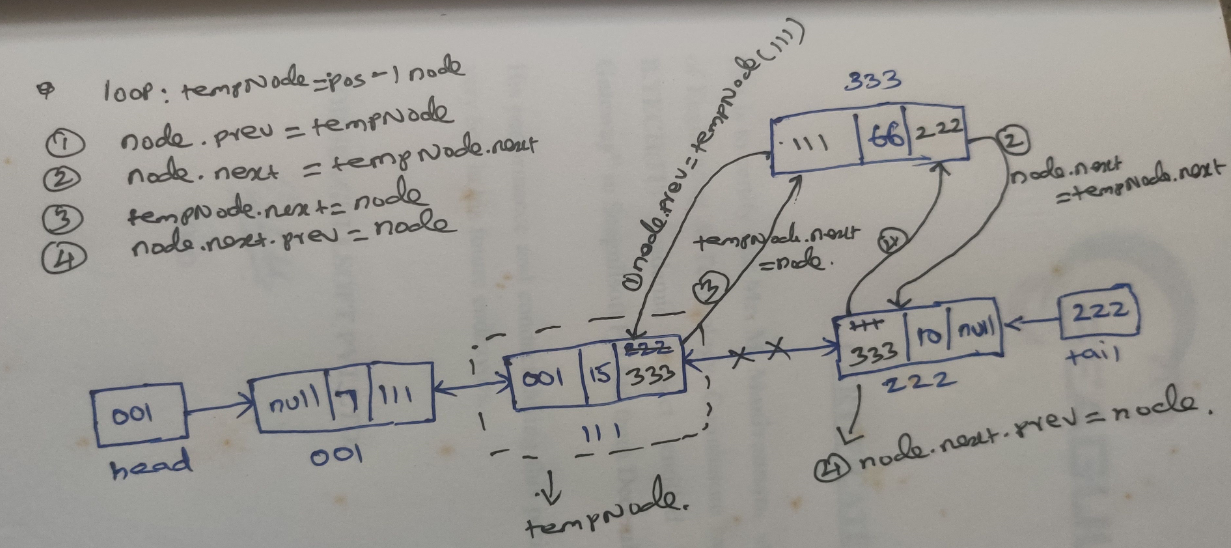 loop: tempNode=pos-1 node
① node.prev = tempNode
② node.next = tempNode.next
③ tempNode.next= node
④ node.next.prev = node
① node.prev = tempNode(111)
333
111 66 222
②
node.next
=tempNode.next
tempNode.next
=node.
③
④
001
head
null 7 111
001
001 15 222
333
111
tempNode.
111
333 10 null
222
222
tail
④ node.next.prev = node.